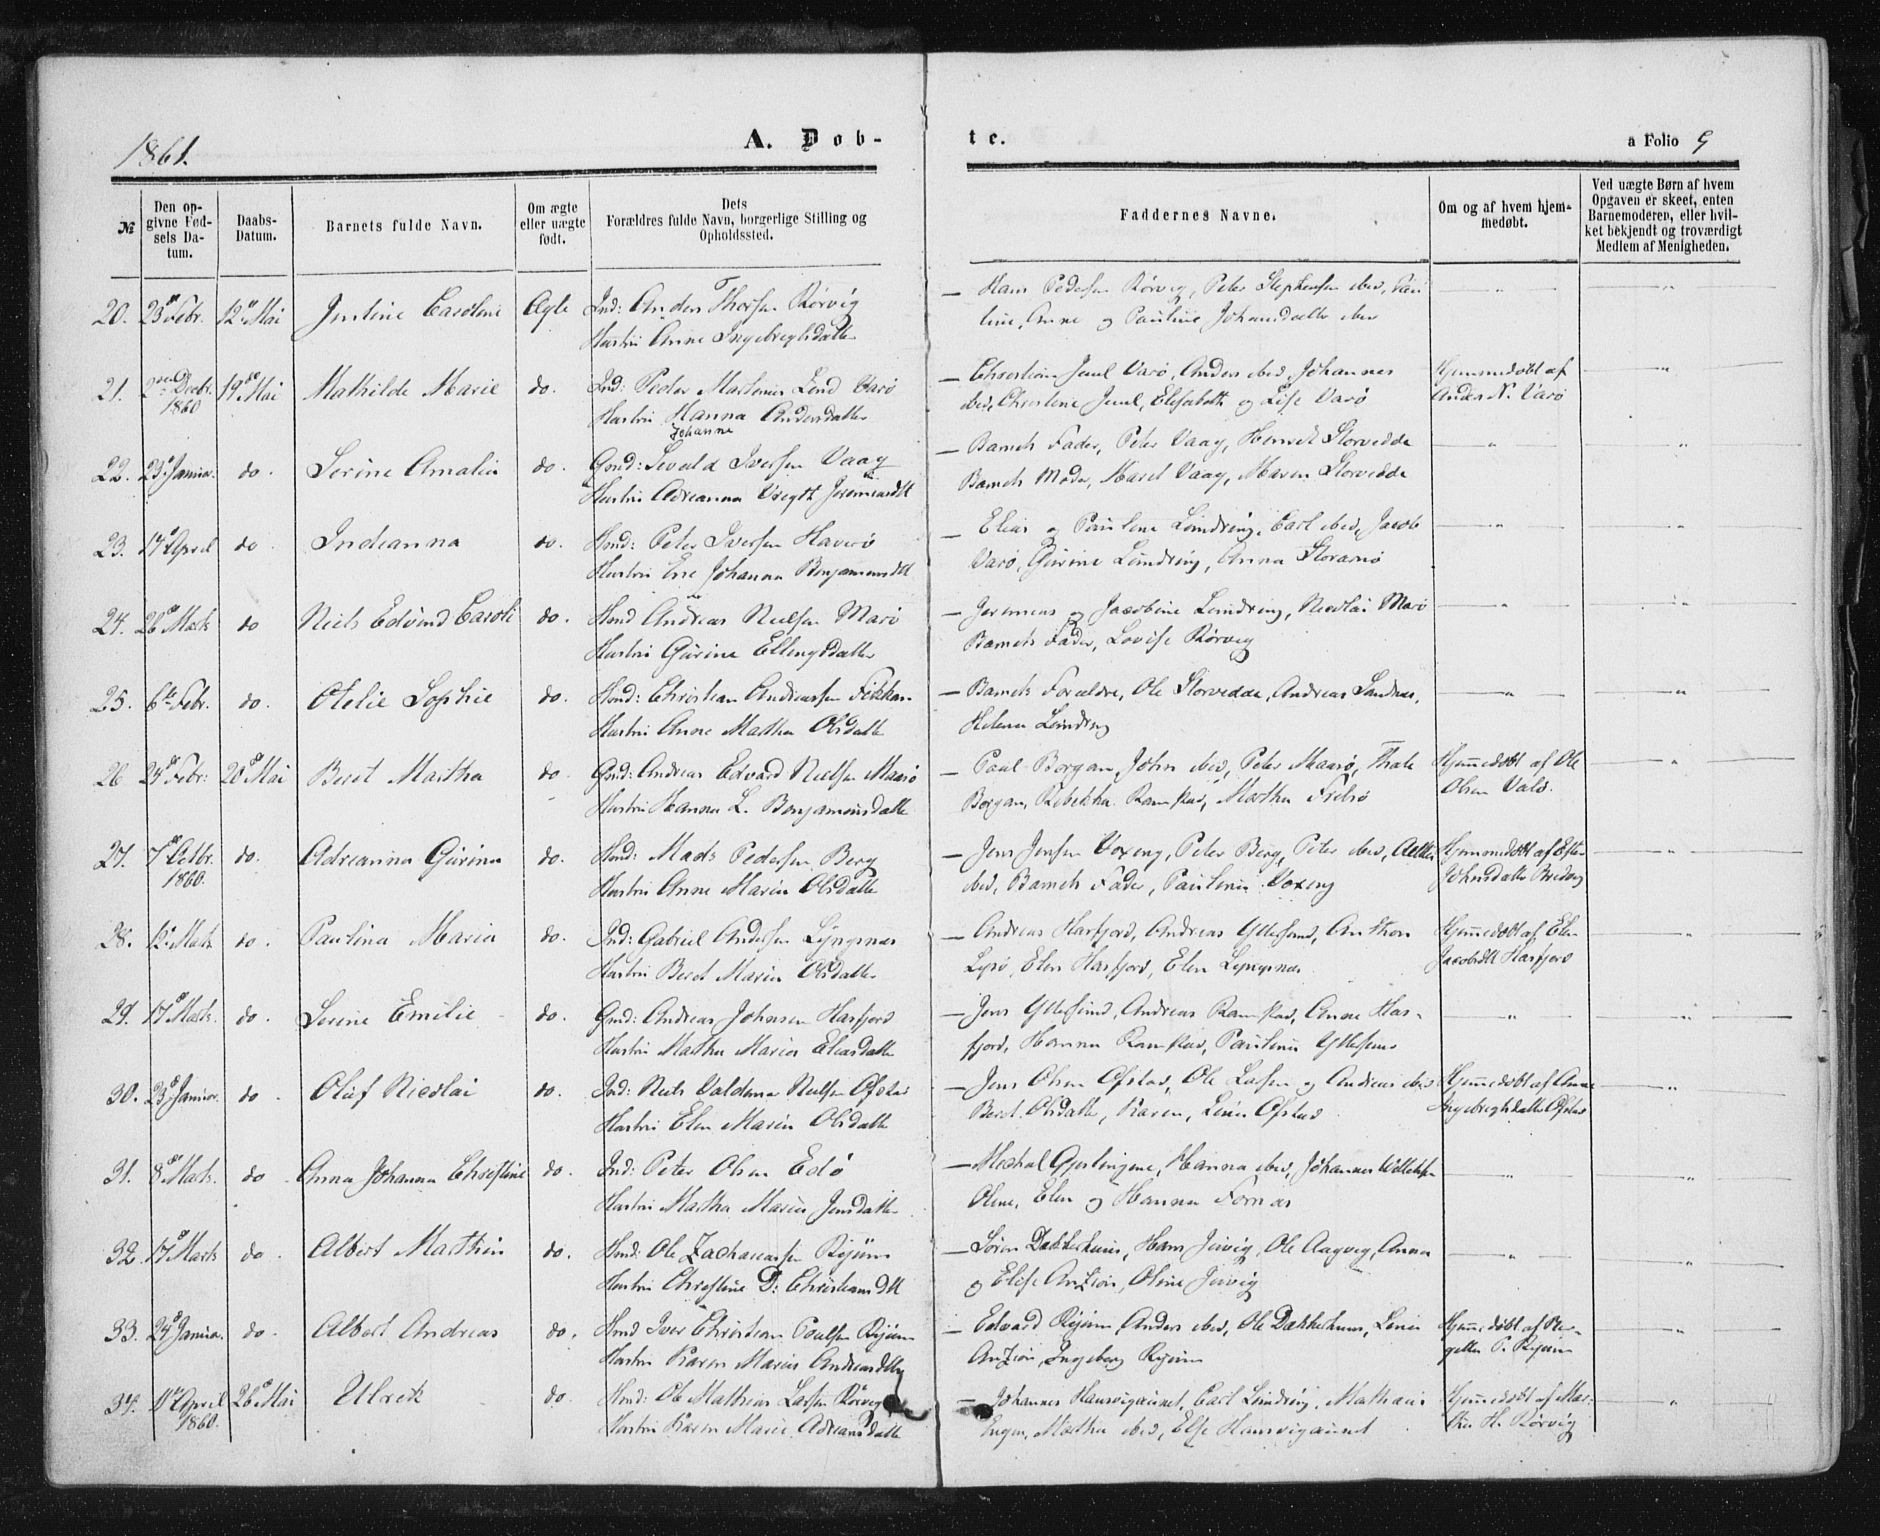 1861.
A. Døb-
te.
a Folio 9
№
Den op-
givne Fød-
sels Da-
tum.
Daabs-
Datum.
Barnets fulde Navn.
Om ægte
eller uægte
født.
Dets
Forældres fulde Navn, borgerlige Stilling og
Opholdssted.
Faddernes Navne.
Om og af hvem hjem-
medøbt.
Ved uægte Børn af hvem
Opgaven er skeet, enten
Barnemoderen, eller hvil-
ket bekjendt og troværdigt
Medlem af Menigheden.
20. 23de Febr. 12te Mai Justine Caroline Ægte Ind: Anders Thorsen Rörvig
Hustru Anne Ingebregtsdatter
Hans Pedersen Rörvig, Peter Stephensen ibid,
Anne og Pauline Johansdatter ibid
21. 2den Decbr. 1860 19de Mai Mathilde Marie do. Ind: Peder Martinus Lund Varö
Hustru Hanna Andersdatter
Johanne
Christian Juul Varö, Anders ibid, Johannes
ibid, Christine Juul, Elisabeth og Lise Varö
Hjemmedöbt af
Anders N. Varö
22. 23de Januar. do. Serine Amalia do. Gmd: Sevald Iversen Vaag
Hustru Adrianna
Barnets Fader, Peter Vaag, Storvedde
Barnets Moder, Maret Vaag, Maren Storvedde
23. 14de April do Indianna do. Hmd: Peter Iversen Haverö
Hustru Johanna Benjaminsdtt
Elias og Pauline Leindring, Carl ibid, Jacob
Varö, Gurine Leindring, Anna
24. 26de Marts do Niels Edvind Caroli do. Hmd Andreas Nielsen Marö
Hustru Gurine Ellingsdatter
Jeremias og Jacobine Leindring, Nicolai Marö
Barnets Fader, Lovise Rörvig
25. 6te Febr. do. Otelie Sophie do. Hmd: Christian Andreassen
Hustru Anne Martha Olsdatter
Barnets Forældre, Ole Storvedde, Andreas Sandnes,
Helena Leindring
26. 24de Febr: 20de Mai Beret Martha do Gmd: Andreas Edvard Nielsen Maarö
Hustru Hanna L. Benjaminsdatter
Paul Borgan, John ibid, Peter Maarö, Thale
Borgan, Rebekka Ramstad, Martha
Hjemmedöbt af Ole
Olsen Vals.
27. 7de Octbr. 1860. do. Adrianna Gurina do. Hmd: Mads Pedersen Berg
Hustru Anne Maria Olsdatter
Jens Jensen Voxeng, Peter Berg, Peter ibid,
ibid, Barnets Fader, Voxeng
Hjemmedöbt af
Johnsdatter
28. 12te Marts do. Paulina Maria do. Ind: Gabriel Andersen Lyngsnæs
Hustru Beret Maria Olsdatter
Andreas Harfjord, Andreas Yttersund, Anthon
Elen Harfjord, Elen Lyngsnæs
Hjemmedöbt af Elen
Jacobsdtt Harfjord
29. 17de Marts. do. Serine Emilie do. Gmd: Andreas Johnsen Harfjord
Hustru Martha Maria Eliasdatter
Jens Yttersund, Andreas Ramstad, Anne Har-
fjord, Hanna Ramstad, Yttersund
30. 23de Januar. do Oluf Nicolai do. Ind: Niels Valdemar Nielsen Ofstad
Hustru Elen Maria Olsdatter
Jens Olsen Ofstad, Ole Larsen og Andreas ibid
Beret Olsdatter, Karen, Ofstad
Hjemmedöbt af Anne
Ingebregtsdatter Ofstad
31. 8de Marts. do Anna Johanna Christine do. Ind: Peter Olsen Edö
Hustru Martha Maria Jensdatter
Gjeslingene, Hanna ibid, Johannes
Oline, Elen og Hanna Fornæs
32. 17de Marts do Albert Marthin do. Hmd: Ole Zachariassen Ryum
Hustru Christine D: Christiansdtt
Sören Dekkerhuus, Hans Juvig, Ole Aagvig, Anna
og Elise Anzion, Oline Juvig
33. 24de Januar. do. Albert Andreas do. Hmd Iver Christian Poulsen Ryum
Hustru Karen Maria
Edvard Ryum, Anders ibid, Ole Dekkerhuus,
Anzion, Ingeborg Ryum
Hjemmedöbt af
P. Ryum
34. 11te April 1860. 26de Mai Ulrik do Hmd: Ole Mathias Larsen Rörvig
Hustru Karen Marie Adriansdatter
Johannes Hansvigaunet, Carl Leindring, Mathias
Engen, Martha ibid, Else Hansvigaunet
Hjemmedöbt af
H. Rörvig